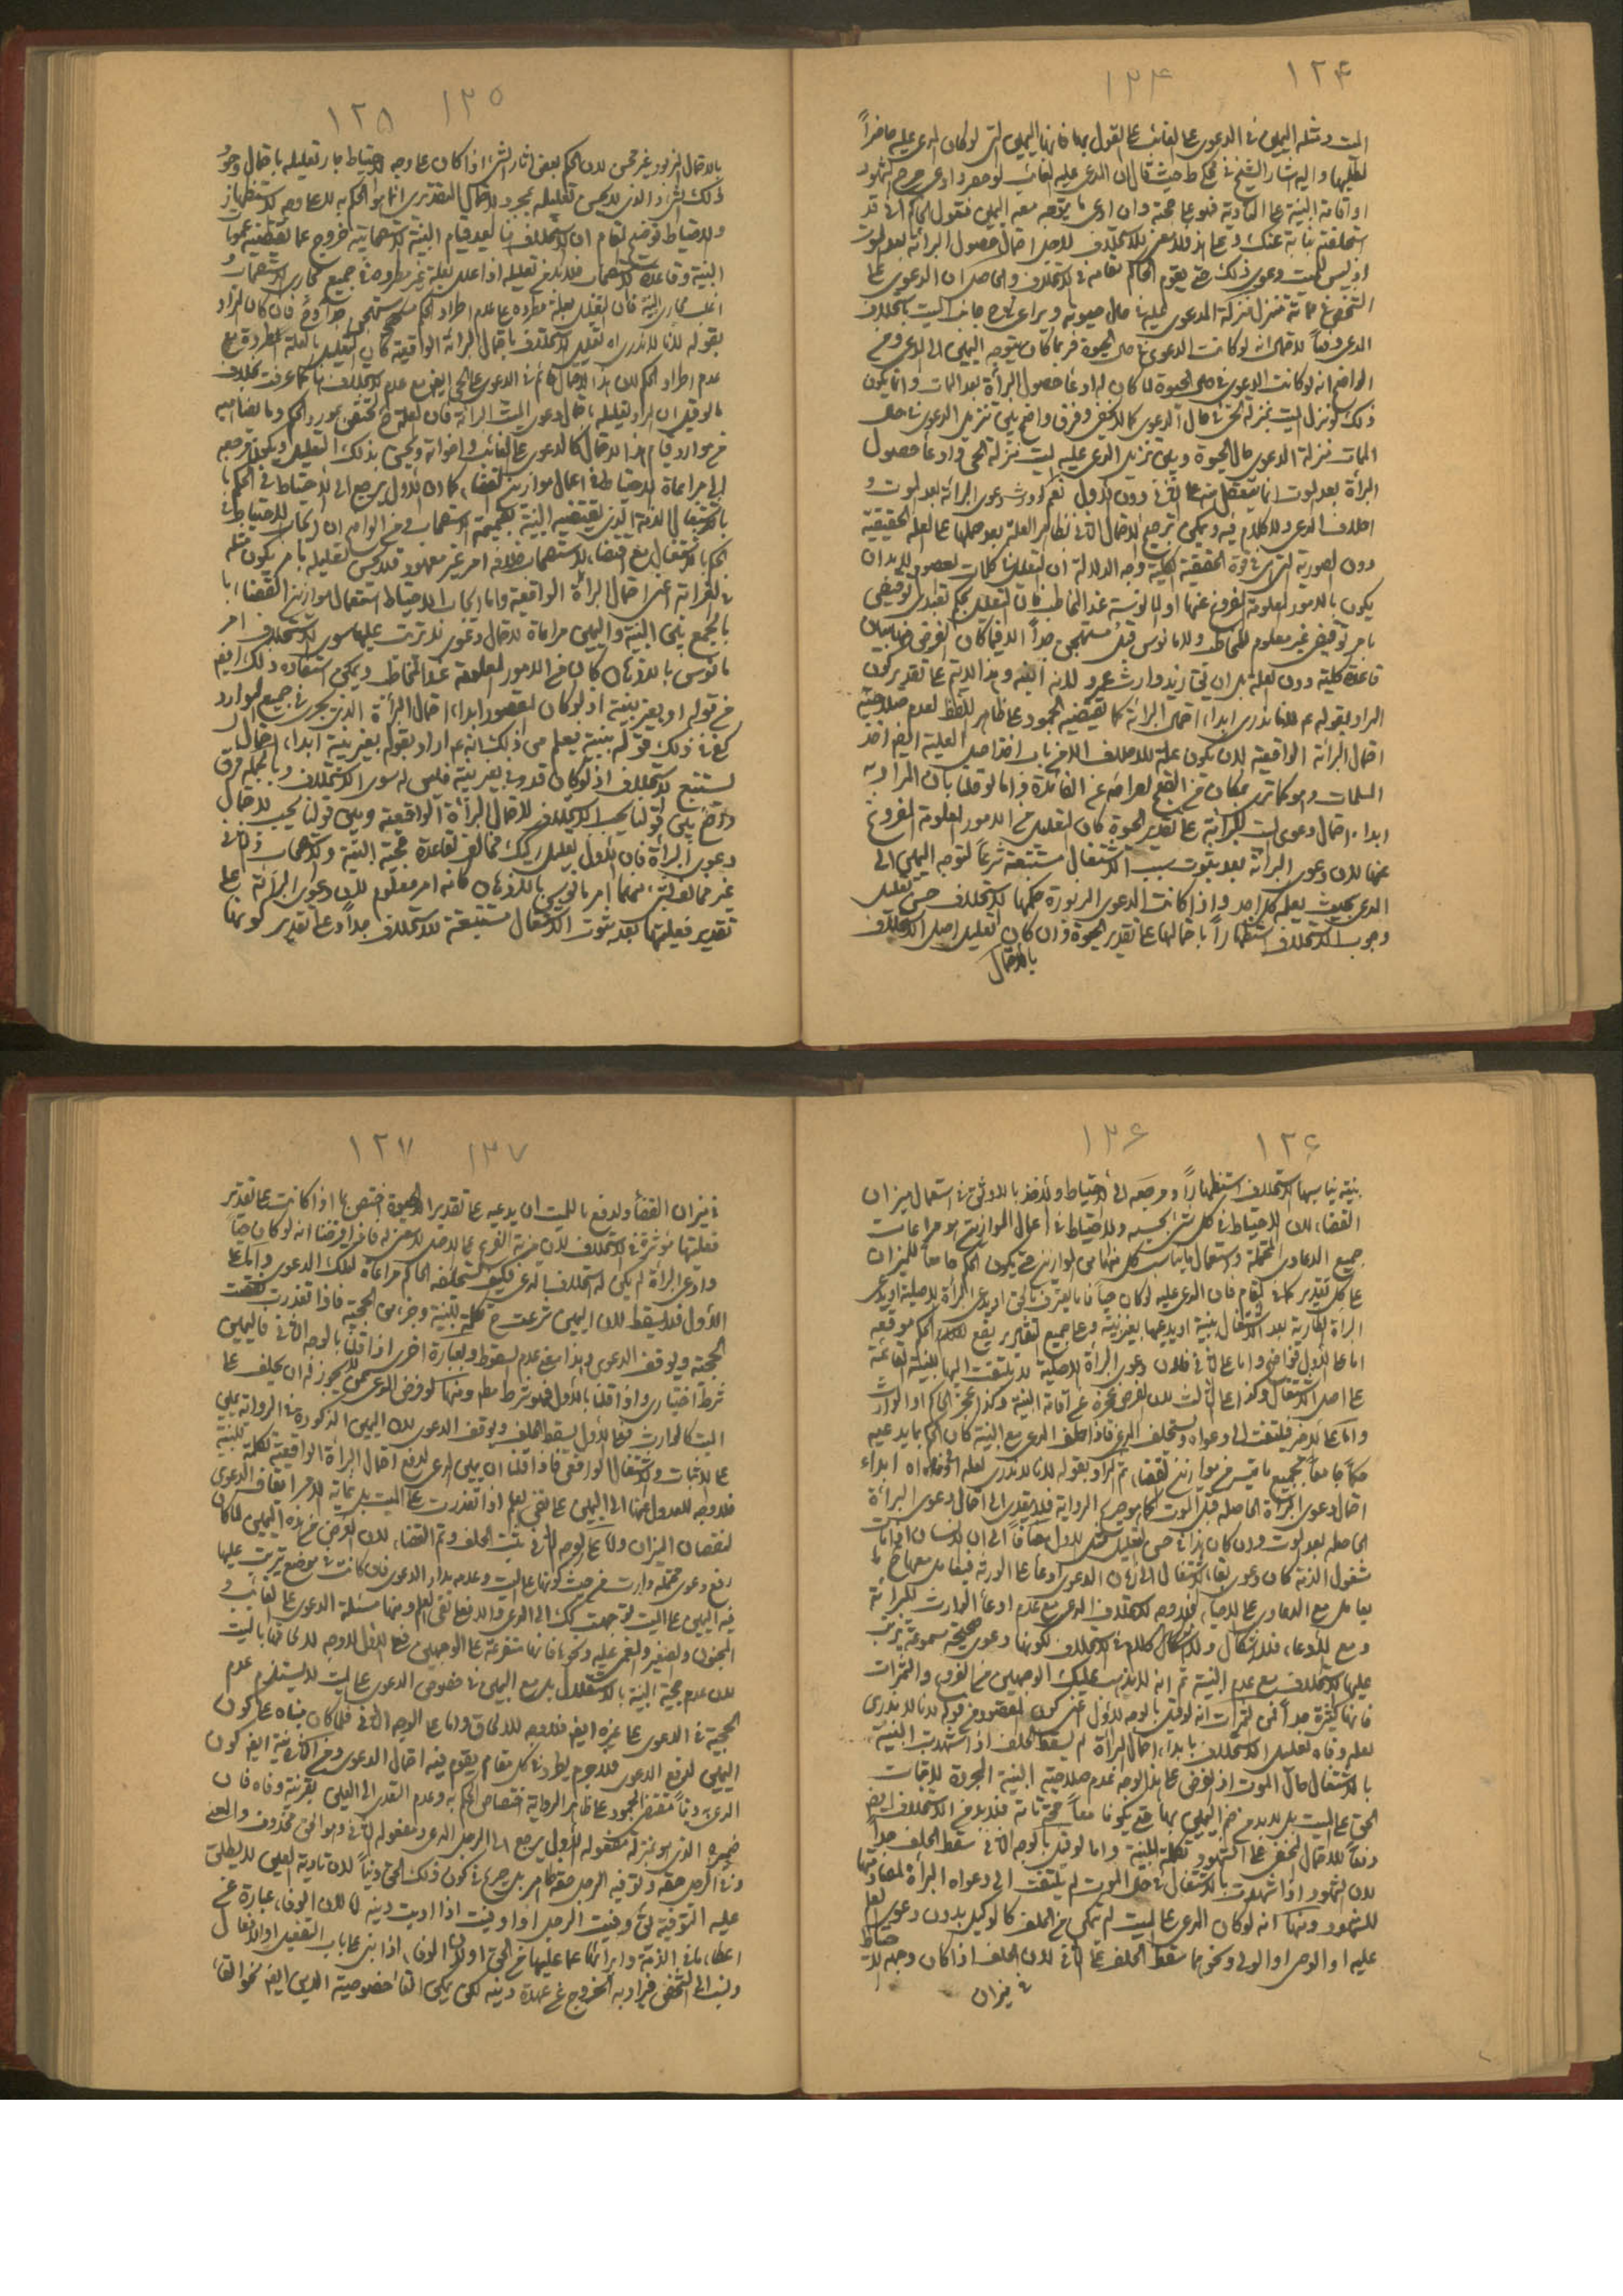 ١٢٤ ١٢٤
الميت ومثله اليمين في الدعوى على الغائب على القول بها فانها اليمين التي لو كان المدعى عليه حاضراً
لطلبها واليه اشار الشيخ في محكي ط حيث قال ان المدعى عليه الغائب لو حضر وادعى جرح الشهود
او اقامة البينة على
استحلفته نيابة عنك وعلى هذا فلا معنى للاستحلاف لاجل احتمال حصول البرائة بعد الموت
اذ ليس للميت دعوى ذلك حتى يقوم الحاكم مقامه في الاستحلاف والحاصل ان الدعوى على
الشخص في مماته منزل منزلة الدعوى عليه في حال حيوته ويراعى جانب الميت باستحلاف
المدعى
الواضح انه لو كانت الدعوى في حال الحيوة لما كان له ادعاء حصول البرائة بعد الممات وانما يكون
ذلك لو نزل الميت بمنزلة الحي في حال الدعوى كما لا يخفى وفرق واضح بين تنزيل الدعوى في حال
الممات منزلة الدعوى حال الحيوة وبين تنزيل المدعى عليه الميت منزلة الحي وادعاء حصول
البرائة بعد الموت انما يتعقل منه على الثاني دون الاول نعم لوارثه دعوى البرائة بعد الموت و
احلاف المدعى ولا كلام فيه ويمكن ترجيح الاحتمال الثاني نظراً الى ظاهر العلة بعد حملها على العلة الحقيقية
دون الصورية التي هي في قوة الحقيقة الكلية وجه الدلالة ان التعليل في كلمات المعصوم لا بد ان
يكون بالامور المعلومة المفروغ عنها او المانوسة عند المخاطب فان التعليل بحكم تعبدي توقيفي
بامر توقيفي غير معلوم للمخاطب ولا مانوس قبل مستهجن جداً الا فيما كان الغرض بيان
قاعدة كلية دون العلة
المراد بقوله ع لانا لا ندري ابداء احتمال البرائة كما يقتضيه الجمود على ظاهر اللفظ لعدم صلاحية
احتمال البرائة الواقعية لان يكون علة للاحلاف
المسلمات وهو كما ترى بمكان من القبح لعرائه عن الفائدة واما لو قلنا بان المراد به
ابداء احتمال دعوى الميت للبرائة على تقدير الحيوة كان التعليل من الامور المعلومة المفروغ
عنها لان دعوى البرائة بعد ثبوت سبب الاشتغال مستتبعة شرعاً لتوجه اليمين الى
المدعى بحيث يعلمه كل احد واذا كانت الدعوى المزبورة حكمها الاستحلاف حسن تعليل
وجوب الاستحلاف استظهاراً باحتمالها على تقدير الحيوة وان كان تعليل اصل الاستحلاف
بالاحتمال
١٢٥ ١٢٥
بالاحتمال المزبور غير حسن لان الحكم ببعض اثار الشيء اذا كان على وجه الاحتياط جاز تعليله باحتمال وجود
ذلك الشيء والذي لا يحسن تعليله بمجرد الاحتمال التقديري انما هو الحكم به لا على وجه الاستظهار
والاحتياط توضيح المقام ان الاستحلاف هنا بعد قيام البينة الاستصحابية خروج عما تقتضيه عموم
البينة وقاعدة الاستصحاب فلا بد في تعليله اذا علل بعلة غير مطردة في جميع مجاري الاستصحاب و
مجاري البينة فان التعليل بعلة مطردة مع عدم اطراد الحكم مستهجن جداً وح فان كان المراد
بقوله لانا لا ندري اه تعليل الاستحلاف باحتمال البرائة الواقعية كان التعليل بالعلة المطردة مع
عدم اطراد الحكم لان هذا الاحتمال قائم في الدعوى على الحي ايضا مع عدم الاستحلاف هنا كما عرفت بخلاف
ما لو قيل ان المراد تعليله باحتمال دعوى الميت البرائة فان العلة ح تختص بمورد الحكم وما يضاهيه
من موارد قيام هذا الاحتمال كالدعوى على الغائب واخواته ويحسن بذلك التعليل ويكون مرجعه
الى مراعاة الاحتياط في اعمال موازين القضاء كما ان الاول يرجع الى الاحتياط في الحكم
باشتغال الذمة الذي تقتضيه البينة بضميمة الاستصحاب ومن الواضح ان ايجاب الاحتياط في
الحكم بالاشتغال مع اقتضاء الاستصحاب خلافه امر غير معهود فلا يحسن تعليله بامر يكون مثله
في الغرابة اعني احتمال البرائة الواقعية واما ايجاب الاحتياط استعمال موازين القضاء
بالجمع بين البينة واليمين مراعاة لاحتمال دعوى لا يترتب عليها سوى الاستحلاف امر
مانوس بالاذهان كان من الامور المعلومة عند المخاطب ويمكن استفادة ذلك ايضا
من قوله او بغير بينة اذ لو كان المقصود ابداء احتمال البرائة الذي يجري في جميع الموارد
كفى في ذلك قوله ببينة يعلم من ذلك انه ع اراد بقوله بغير بينة ابداء احتمال
يستتبع الاستحلاف اذ لو كان قد وفى بغير بينة فليس له سوى الاستحلاف وبالجملة فرق
واضح بين قولنا يجب الاستحلاف لاحتمال البرائة الواقعية وبين قولنا يجب لاحتمال
دعوى البرائة فان الاول تعليل ركيك مخالف لقاعدة حجية البينة والاستصحاب والثاني
غير مخالف لشيء منهما امر مانوس بالاذهان كانه امر معلوم لان دعوى البرائة على
تقدير فعليتها بعد ثبوت الاشتغال مستتبعة للاستحلاف جداً وعلى تقدير كونها
١٢٦ ١٢٦
بنية يناسبها الاستحلاف استظهاراً ومرجعه الى الاحتياط والاخذ بالاوثق في استعمال ميزان
القضاء لان الاحتياط في كل شيء بحسبه والاحتياط في اعمال الموازين هو مراعات
جميع الدعاوى المحتملة واستعمال ما يناسب كل منها من الموازين حتى يكون الحكم جامعاً للميزان
على كل تقدير كما في المقام فان المدعى عليه لو كان حياً فاما يعترف بالحق او يدعي البرائة الاصلية او يدعي
البرائة الطارية بعد الاشتغال ببينة او يدعيها بغير بينة وعلى جميع التقادير يقع الحكم موقعه
اما على الاول فواضح واما على الثاني فلان دعوى البرائة الاصلية لا يلتفت اليها للبينة القائمة
على اصل الاشتغال وكذا على الثالث لان المفروض عجزه عن اقامة البينة وكذا عجز الحاكم او الوارث
واما على الاخير فيلتفت الى دعواه ويستحلف المدعي فاذا حلف المدعى مع البينة كان الحكم بما يدعيه
حكماً جامعاً لجميع ما تيسر من موازين القضاء ثم المراد بقوله لانا لا ندري لعله اوفاه اه ابداء
احتمال دعوى البرائة الحاصلة قبل الموت كما هو صريح الرواية فلا يتعدى الى احتمال دعوى البرائة
الحاصلة بعد الموت
مشغول الذمة كان دعوى بقاء الاشتغال الى زمان الدعوى ادعاء على الورثة فيعامل معها ح ما
يعامل مع الدعاوى على الاحياء فلا وجه لاستحلاف المدعى مع عدم ادعاء الوارث للبرائة
ومع الادعاء فلا اشكال ولا كلام في الاستحلاف لكونها دعوى صحيحة مسموعة يترتب
عليها الاستحلاف مع عدم البينة ثم انه لا يذهب عليك الوجهين من الفرق والثمرات
فانها كثيرة جداً فمن الثمرات انه لو قيل بالوجه الاول اعني كون المقصود من قوله لانا لا ندري
لعله وفاه تعليل الاستحلاف بابداء احتمال البرائة لم يسقط الحلف اذا شهدت البينة
بالاشتغال حال الموت اذ المفروض على هذا الوجه عدم صلاحية البينة المجردة لاثبات
الحق على الميت بل لا بد من ضم اليمين بها حتى يكونا معاً حجة تامة فلا بد من الاستحلاف ايضا
دفعاً للاحتمال المخفى على الشهود وتكملة للبينة واما لو قيل بالوجه الثاني سقط الحلف جداً
لان الشهود اذا شهدت بالاشتغال في حال الموت لم يلتفت الى دعواه البرائة لمضادتها
للشهود ومنها انه لو كان المدعى على الميت لم يتمكن من الحلف كالوكيل بدون دعوى العلم
عليه او الوصي او الولي ونحوهما سقط الحلف على الثاني لان الحلف اذا كان وجهه الاحتياط
في ميزان
١٢٧ ١٢٧
في ميزان القضاء والدفع بالميت ان يدعيه على تقدير الحيوة اختص بما اذا كانت على تقدير
فعليتها مؤثرة في الاستحلاف لان مزية الفرع على الاصل لا معنى له فاذا فرضنا انه لو كان حياً
وادعى البرائة لم يكن له استحلاف المدعى فكيف يستحلفه الحاكم مراعاة لتلك الدعوى واما على
الاول فلا يسقط لان اليمين شرعت ح تكملة للبينة وجزء من الحجة فاذا تعذرت سقطت
الحجة ويوقف الدعوى وهذا معنى عدم السقوط وبعبارة اخرى اذا قلنا بالوجه الثاني فاليمين
شرط اختياري واذا قلنا بالاول فهو شرط مطلق ومنها لو فرض المدعى ممن يجوز له ان يحلف على
الميت كالوارث فعلى الاول يسقط الحلف ويوقف الدعوى لان اليمين المذكورة في الرواية يمين
على الاثبات والاشتغال الواقعي فاذا قلنا ان يمين المدعى لدفع احتمال البرائة الواقعية تكملة للبينة
فلا وجه للعدول عنها الى اليمين على نفي العلم اذا تعذرت على الميت بل غاية الامر ايقاف الدعوى
لنقصان الميزان واما على الوجه الثاني يثبت الحلف وتم القضاء لان الغرض من هذه اليمين لما كان
رفع دعوى محتملة
فيه اليمين على الميت توجهت تلك الى المدعى والا فعلى نفي العلم ومنها مسئلة الدعوى على الغائب و
المجنون والصغير والمغمى عليه ونحوها فانها متفرعة على الوجهين فعلى الاول لا وجه لالحاقها بالميت
لان عدم حجية البينة بالاستقلال بل مع اليمين في خصوص الدعوى على الميت لا يستلزم عدم
الحجية في الدعوى على غيره ايضا فلا وجه للالحاق واما على الوجه الثاني فلما كان مبناه على كون
اليمين لدفع الدعوى فلا جرم يطرد في كل مقام يقوم فيه احتمال الدعوى ومن الثمرات ايضا كون
المدعى ديناً مقتضى الجمود على ظاهر الرواية اختصاص الحكم به وعدم التعدى الى العين بقرينة وفاه فان
ضميره الذي هو بمنزلة مفعوله الاول يرجع الى الرجل المدعى ومفعوله الثاني وهو الحق محذوف والمعنى
وفى الرجل حقه وتوفية الرجل حقه ظاهر بل صريح في كون ذلك الحق ديناً لان تادية العين لا يطلق
عليه التوفية يقال وفيت الرجل او اوفيت اذا اديت دينه لان الوفاء عبارة عن
اعطاء ما في الذمة وابرائها عما عليها من الحق او لان الوفاء اذا بني على باب التفعيل او الافعال
ونسب الى الشخص فيراد به الخروج عن عهدة دينه لكن يمكن الغاء خصوصية الدين ايضا نحو الغاء